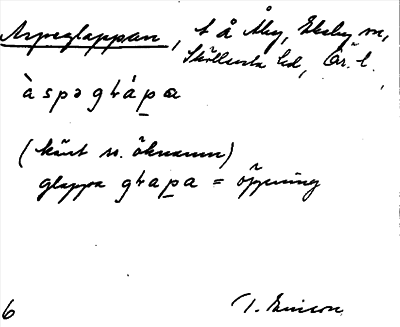 Aspeglappan, t å Åby, Ekeby sn,
Sköllersta hd, Ör. l.
àspəgɫápa
(känt ss. öknamn)
glappa gɫapa = öppning
6 T. Ericson